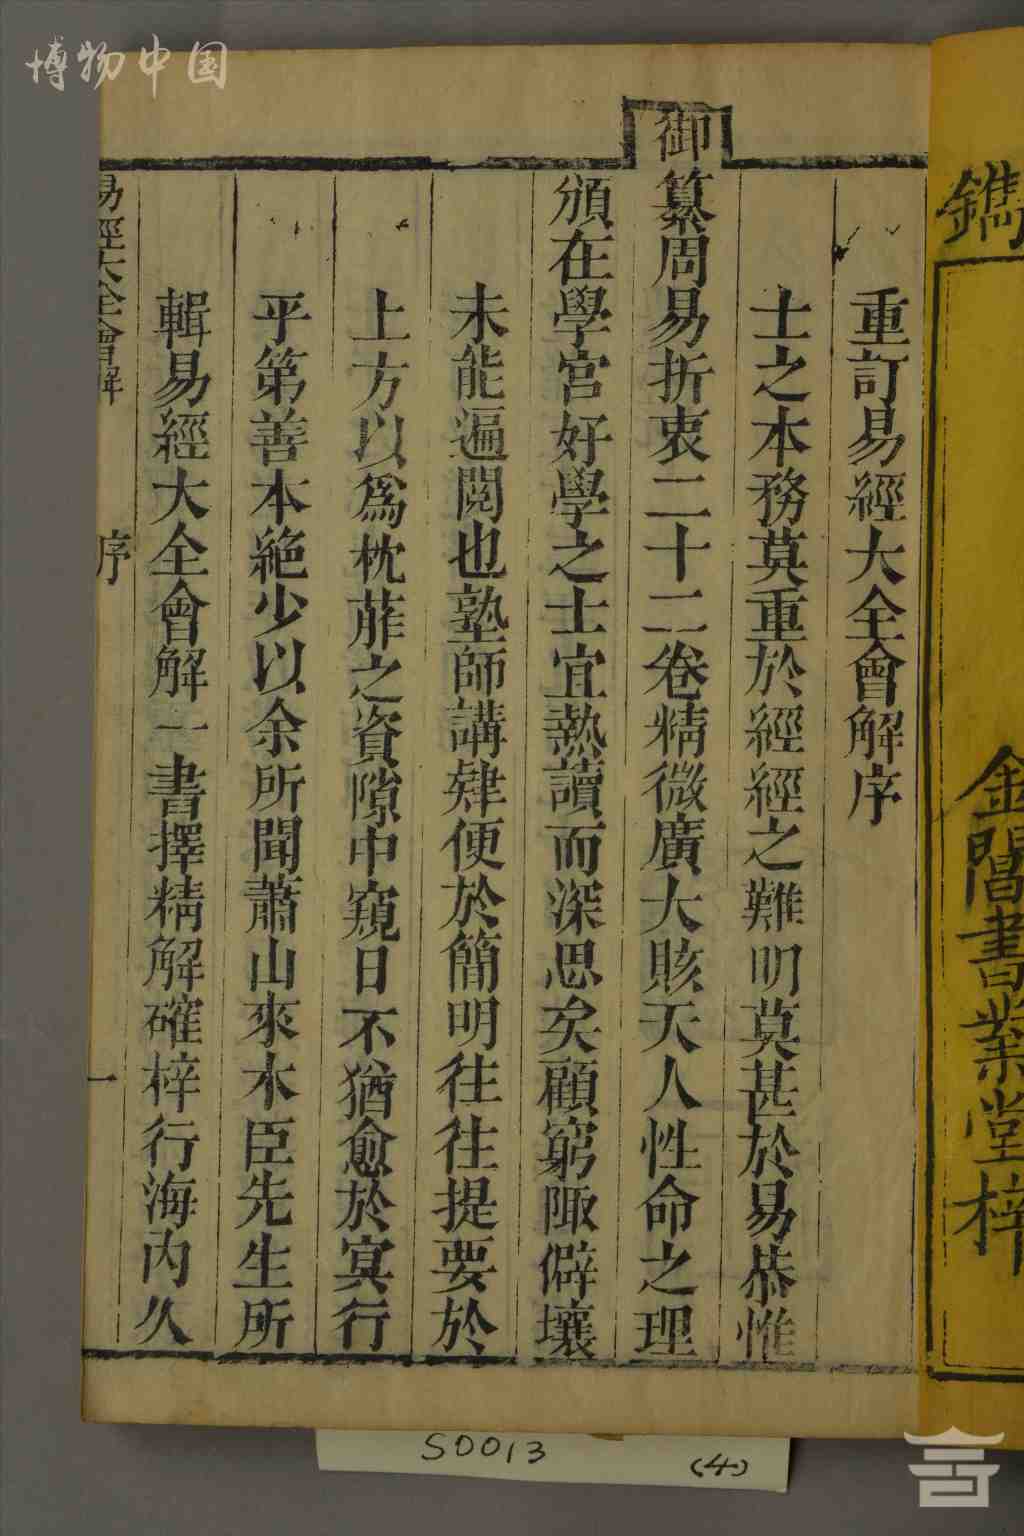 博物中国
鐫
金閶書業堂梓
重訂易經大全會解序
士之本務莫重於經經之難明莫甚於易恭惟
御纂周易折衷二十二卷精微廣大賅天人性命之理
頒在學宮好學之士宜熟讀而深思矣顧窮陬僻壤
未能遍閱也塾師講肄便於簡明往往提要於
上方以為枕萉之資隙中窺日不猶愈於冥行
乎第善本絶少以余所聞蕭山來木臣先生所
輯易經大全會解一書擇精解確梓行海內久
易經大全會解 序 一
S0013 (4)